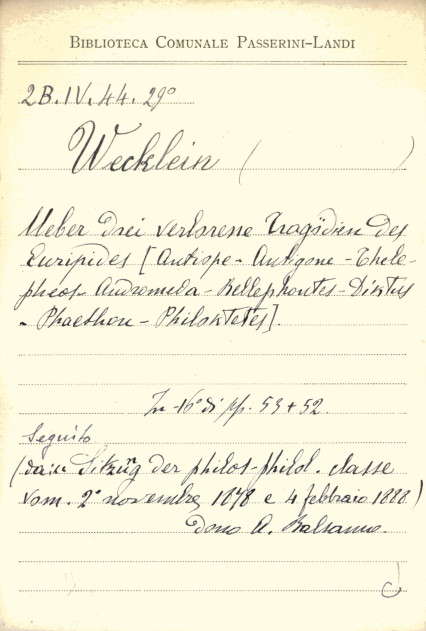 BIBLIOTECA COMUNALE PASSERINI-LANDI
2B.IV.44.29°
Wecklein ( )
Ueber drei verlorene Tragödien des
Euripides [Antiope - Antigone - Thele-
pheos - Andromeda - Bellephontes - Diktus
- Phaethon - Philoktetes].
In -16° di pp. 53 + 52.
Seguito
(dain Sitzūg der philos-philol. classe
vom. 2° novembre, 1878 e 4 febbraio 1888)
dono A. Balsamo.